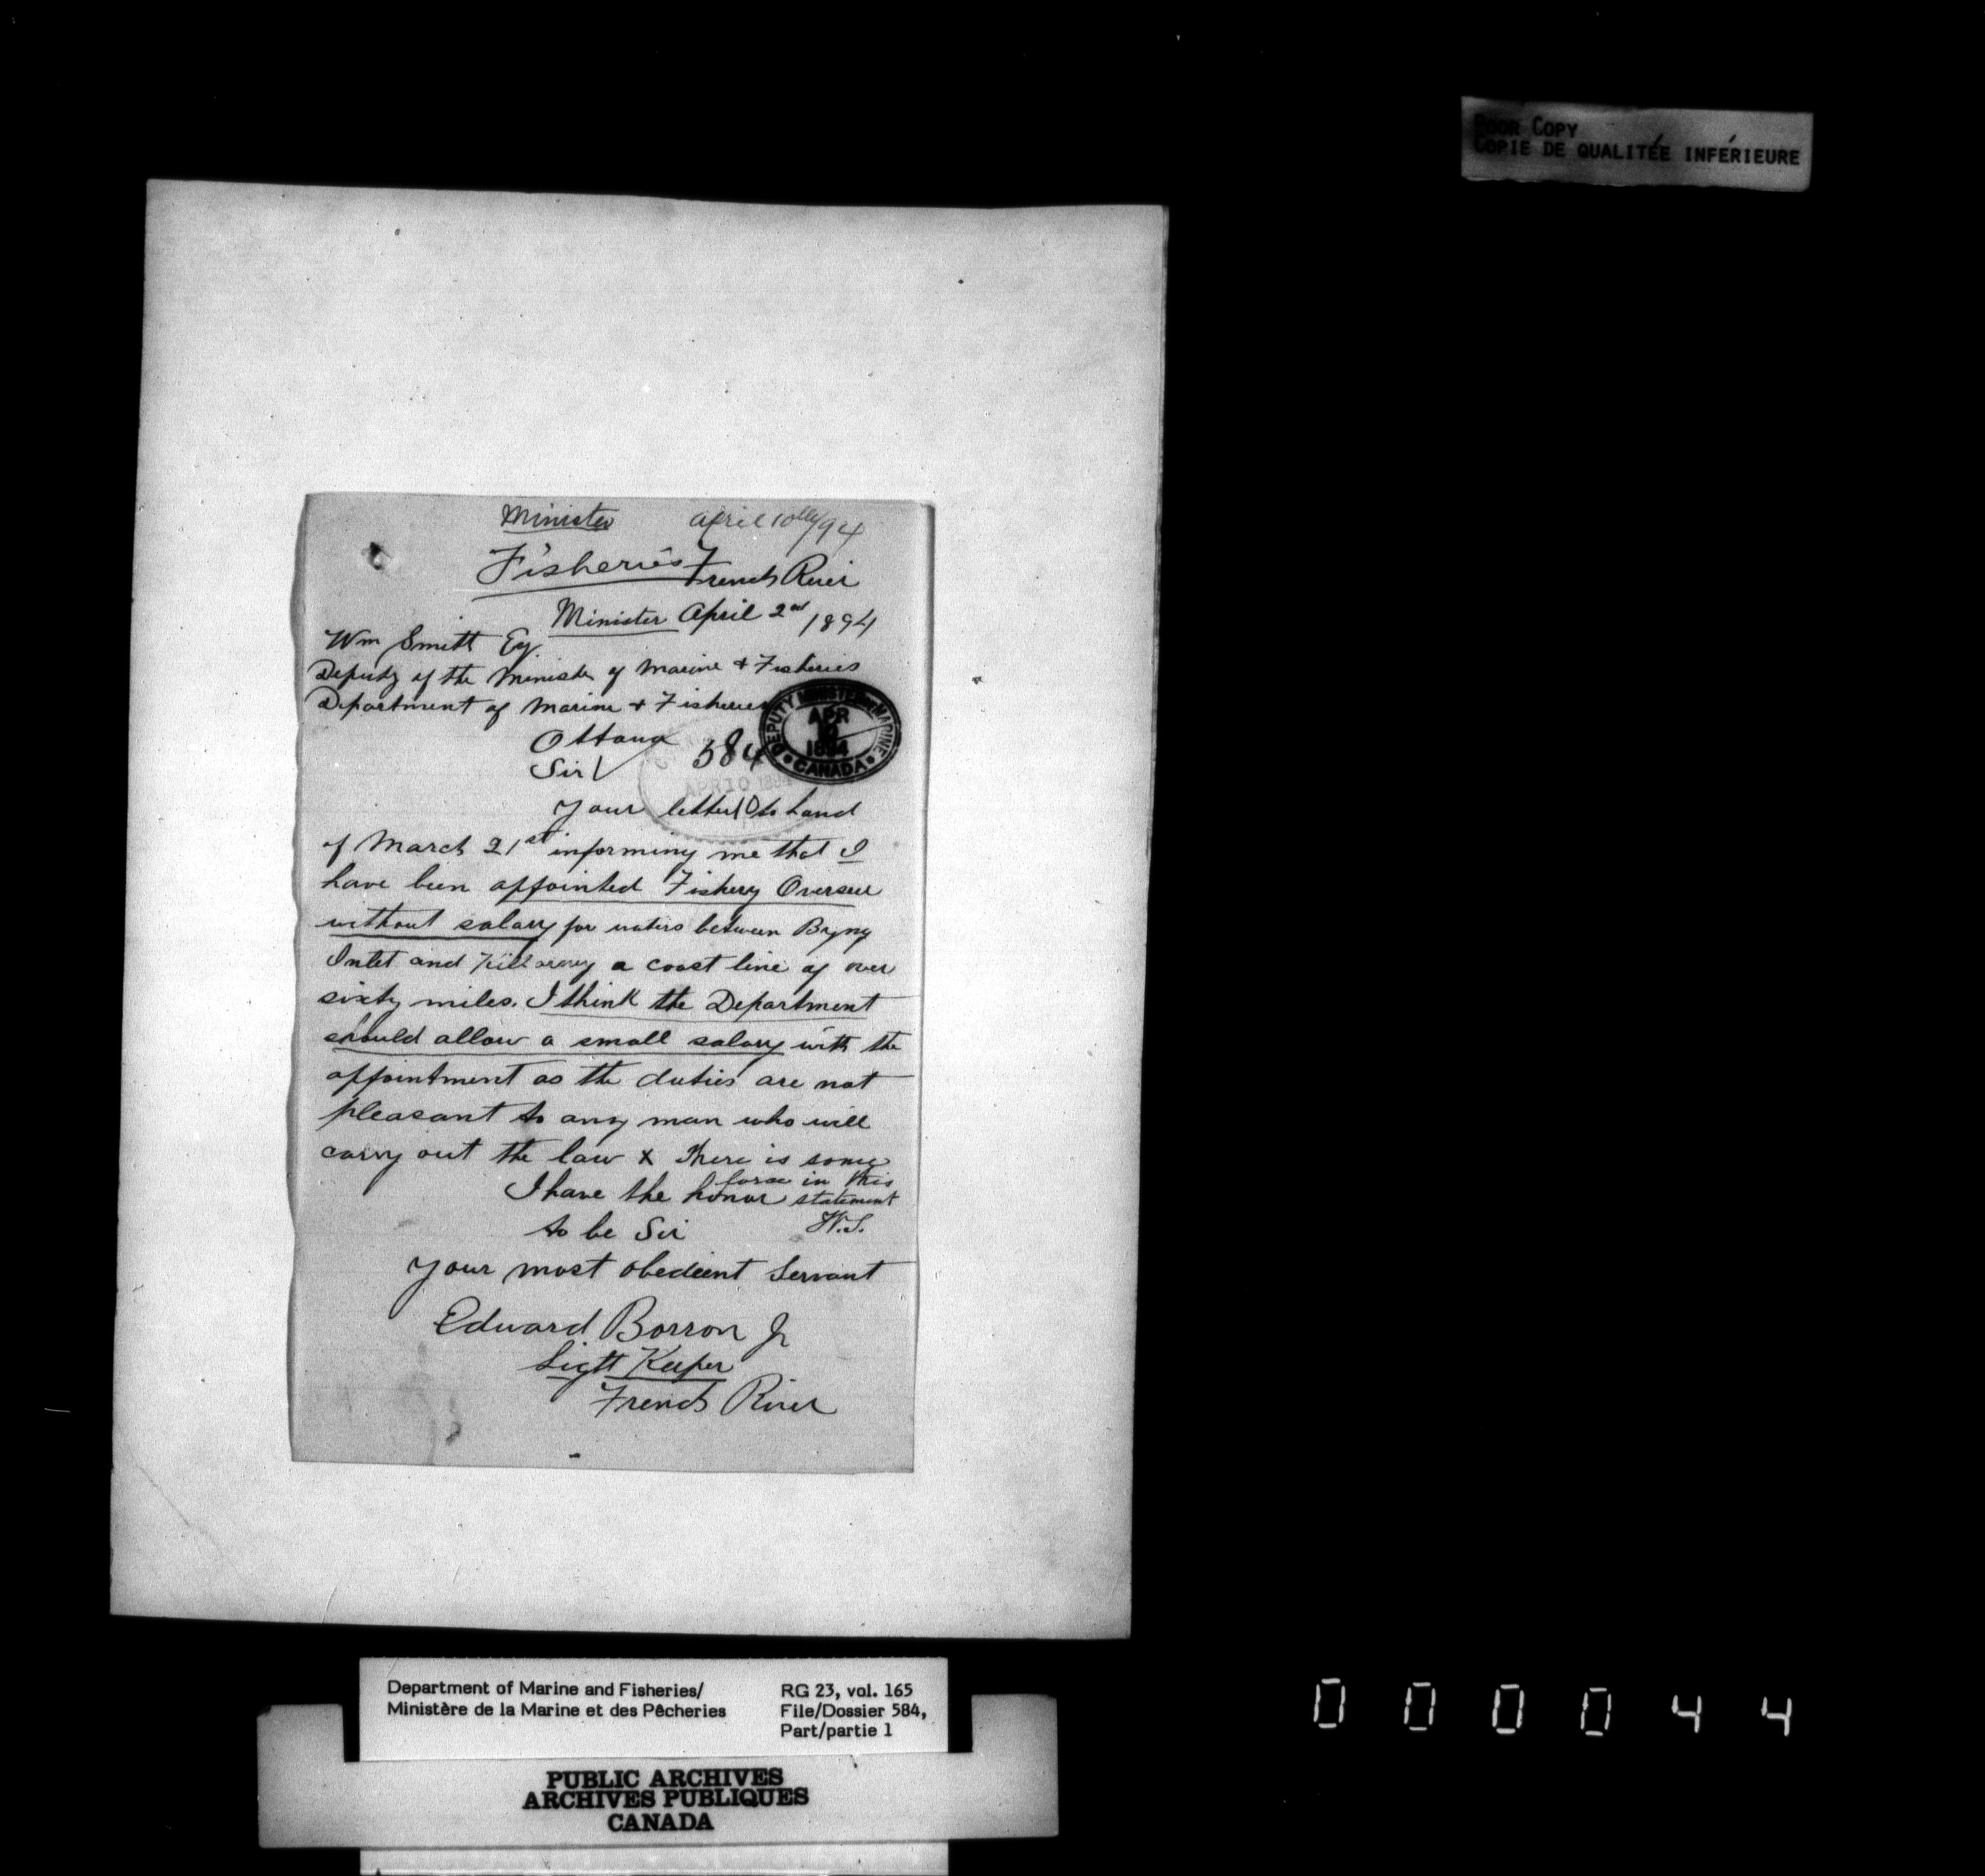 POOR COPY
COPIE DE QUALITÉE INFÉRIEURE
Minister April 10th/94
Fisheries
French River
Minister April 2nd 1894
Wm Smith Esq.
Deputy of the Minister of Marine + Fisheries
Department of Marine + Fisheries
DEPUTY MINISTER OF MARINE
APR
10
1894
CANADA
Ottawa
584
Sir
APR 10 1894
Your letter to hand
of March 21st informing me that I
have been appointed Fishery Overseer
without salary for waters between Byng
Inlet and Killarney a coast line of over
sixty miles. I think the Department
should allow a small salary with the
appointment as the duties are not
pleasant to any man who will
carry out the law x There is some
force in this
statement
W.S.
I have the honor
to be Sir
Your most obedient Servant
Edward Borron Jr
Light Keeper
French River
Department of Marine and Fisheries/
Ministère de la Marine et des Pêcheries
RG 23, vol. 165
File/Dossier 584,
Part/partie 1
PUBLIC ARCHIVES
ARCHIVES PUBLIQUES
CANADA
000044